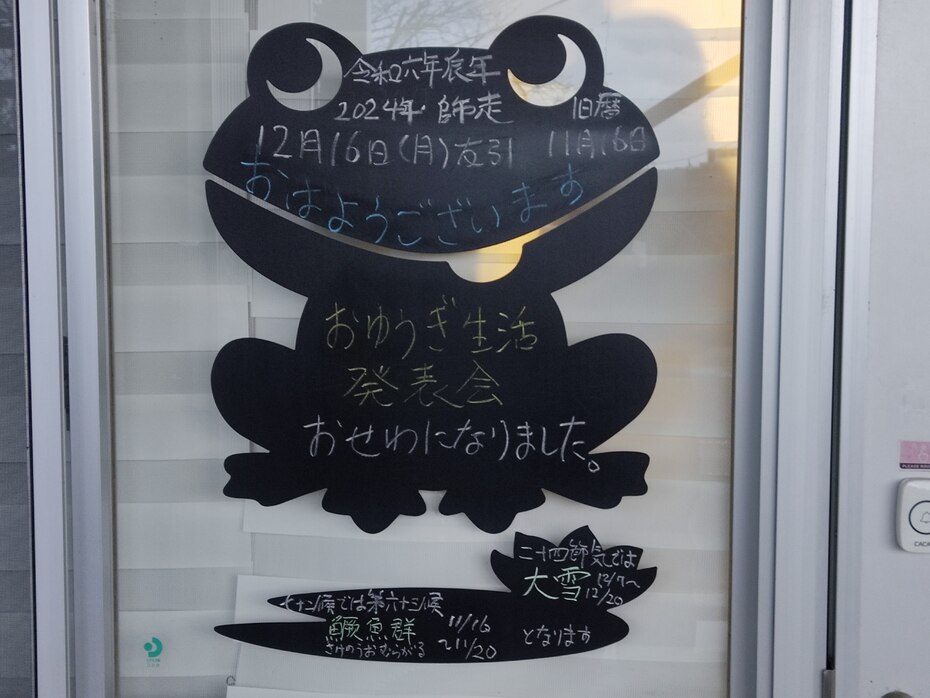 令和六年辰年
2024年・師走 旧暦
12月16日(月)友引 11月16日
おはようございます
おゆうぎ生活
発表会
おせわになりました。
二十四節気では
大雪 12/7～
12/20
七十二候では第六十三候
鱖魚群 11/16
さけのうおむらがる ～11/20
となります